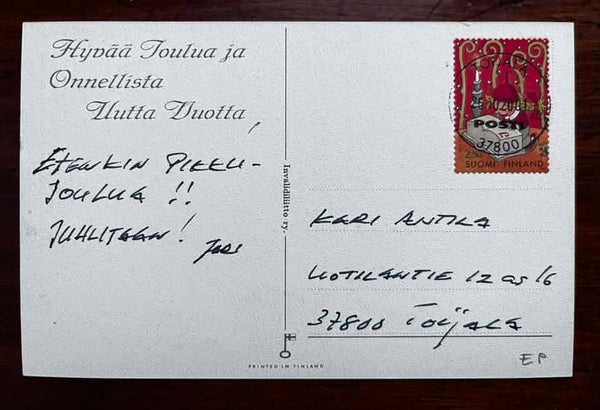 Hyvää Joulua ja
Onnellista
Uutta Vuotta
!
ETENKIN PIKKU-
JOULUA !!
JUHLITAAN!
Invalidiliitto ry.
PRINTED IN FINLAND
POSTI
37800
SUOMI FINLAND
KARI ANTILA
UOTILANTIE 12 as 16
37800 Toijala
EP